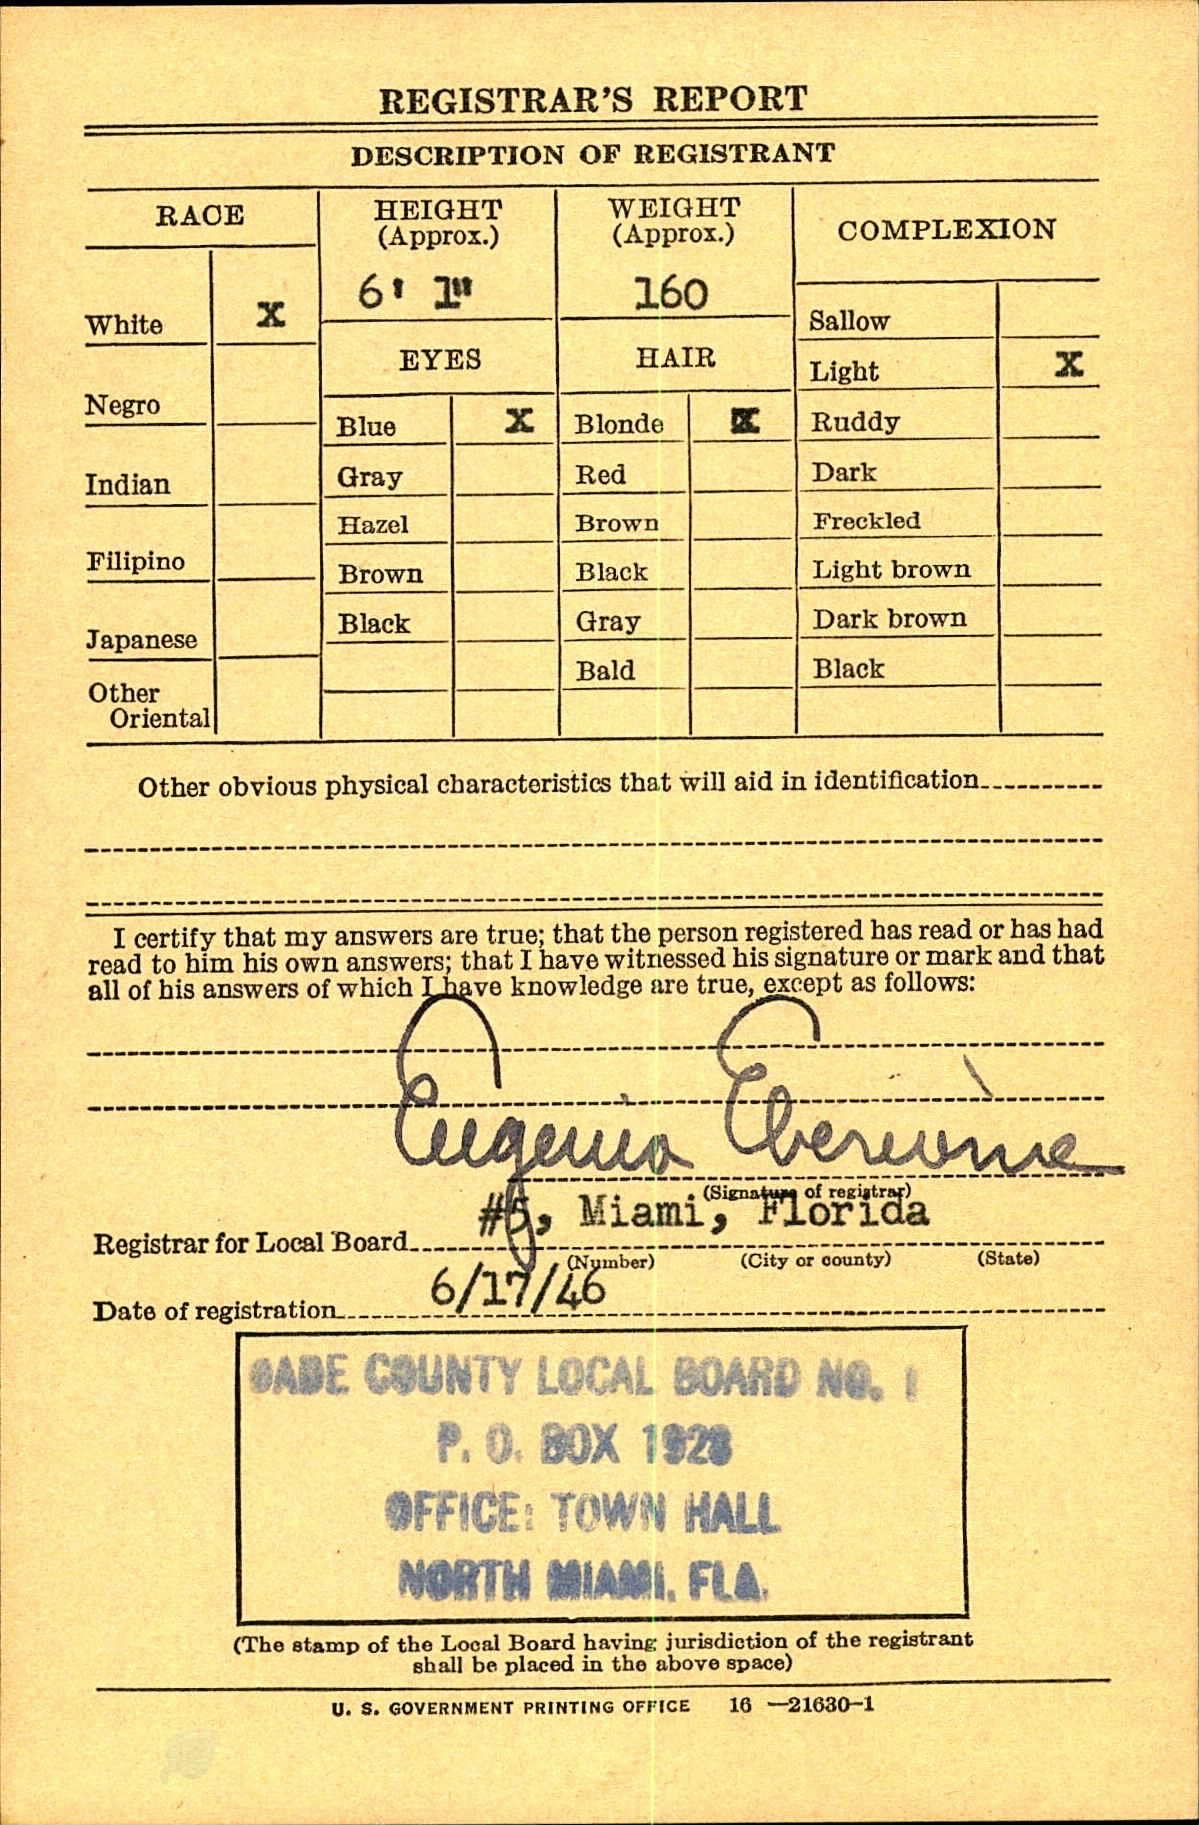 REGISTRAR'S REPORT
DESCRIPTION OF REGISTRANT
RACE
White X
Negro
Indian
Filipino
Japanese
Other
Oriental
HEIGHT
(Approx.)
6' 1"
WEIGHT
(Approx.)
160
EYES
Blue X
Gray
Hazel
Brown
Black
HAIR
Blonde X
Red
Brown
Black
Gray
Bald
COMPLEXION
Sallow
Light X
Ruddy
Dark
Freckled
Light brown
Dark brown
Black
Other obvious physical characteristics that will aid in identification
I certify that my answers are true; that the person registered has read or has had
read to him his own answers; that I have witnessed his signature or mark and that
all of his answers of which I have knowledge are true, except as follows:
Eugenia
(Signature of registrar)
#5, Miami, Florida
Registrar for Local Board
(Number) (City or county) (State)
6/17/46
Date of registration
DADE COUNTY LOCAL BOARD NO. 1
P. O. BOX 1928
OFFICE: TOWN HALL
NORTH MIAMI, FLA.
(The stamp of the Local Board having jurisdiction of the registrant
shall be placed in the above space)
U. S. GOVERNMENT PRINTING OFFICE 16—21630-1